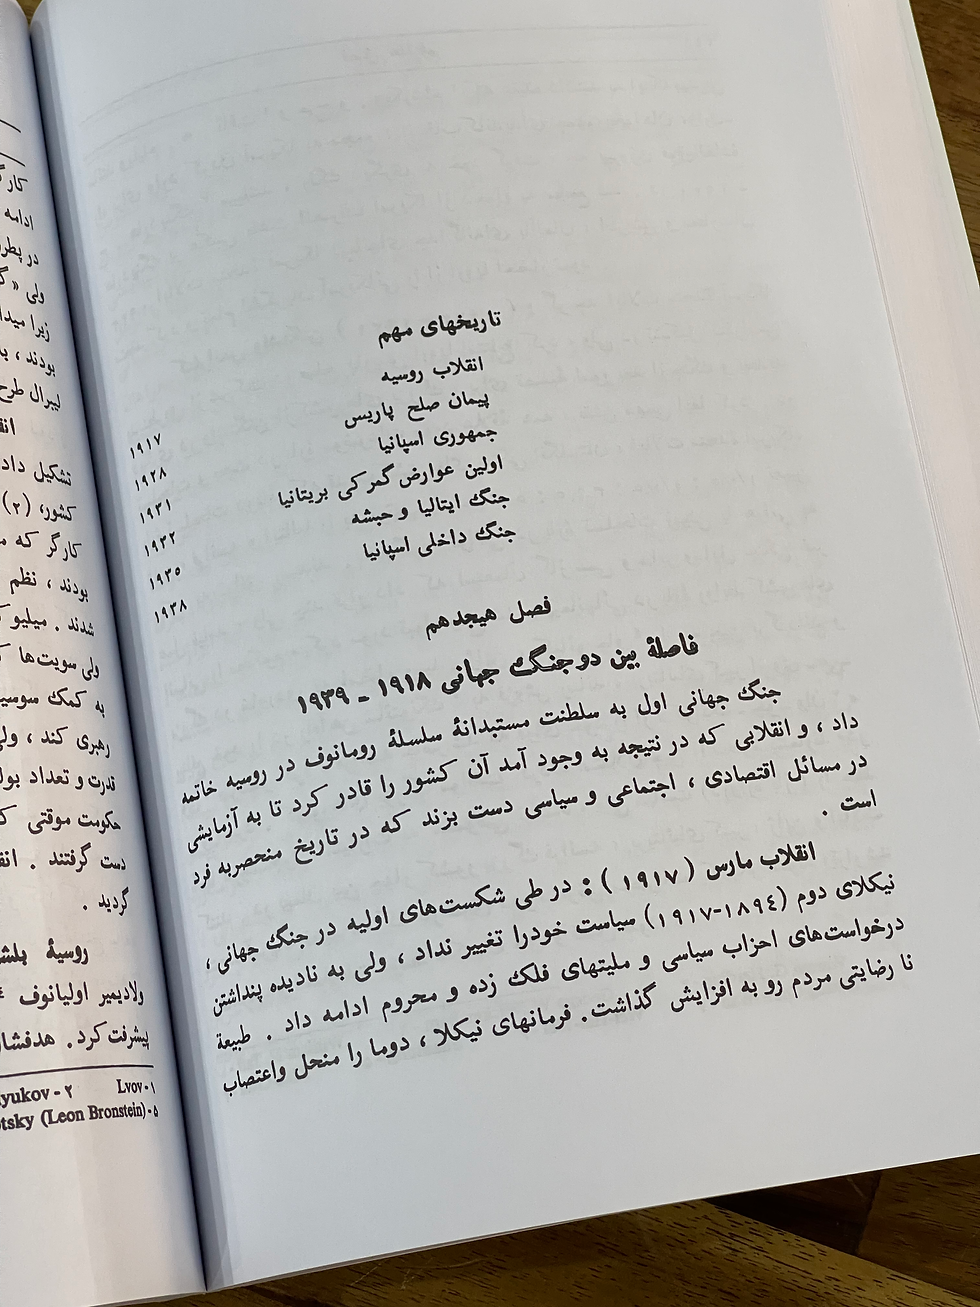 تاریخهای مهم
انقلاب روسیه ۱۹۱۷
پیمان صلح پاریس ۱۹۲۸
جمهوری اسپانیا ۱۹۳۱
اولین عوارض گمرکی بریتانیا ۱۹۳۲
جنگ ایتالیا و حبشه ۱۹۳۵
جنگ داخلی اسپانیا ۱۹۳۸
فصل هیجدهم
فاصلهٔ بین دو جنگ جهانی ۱۹۱۸ ـ ۱۹۳۹
جنگ جهانی اول به سلطنت مستبدانهٔ سلسلهٔ رومانوف در روسیه خاتمه
داد ، و انقلابی که در نتیجه به وجود آمد آن کشور را قادر کرد تا به آزمایشی
در مسائل اقتصادی ، اجتماعی و سیاسی دست بزند که در تاریخ منحصربه فرد
است .
انقلاب مارس ( ۱۹۱۷ ) : در طی شکست‌های اولیه در جنگ جهانی ،
نیکلای دوم (۱۸۹٤-۱۹۱۷) سیاست خودرا تغییر نداد ، ولی به نادیده پنداشتن
درخواست‌های احزاب سیاسی و ملیتهای فلک زده و محروم ادامه داد . طبیعة
نا رضایتی مردم رو به افزایش گذاشت. فرمانهای نیکلا ، دوما را منحل واعتصاب
ادامه
در پطر
زیرا میدا
بودند ، ب
لیبرال طرح
تشکیل داد
کشور، (۲)
کارگر که م
بودند ، نظم
شدند . میلیو
ولی سویت‌ها ک
به کمک سوسی
رهبری کند ، ولی
قدرت و تعداد بول
حکومت موقتی ک
دست گرفتند . انق
گردید .
روسیهٔ بلش
ولادیمیر اولیانوف
پیشرفت کرد . هدفشا
۱- Lvov ۲- yukov
۵- otsky (Leon Bronstein)